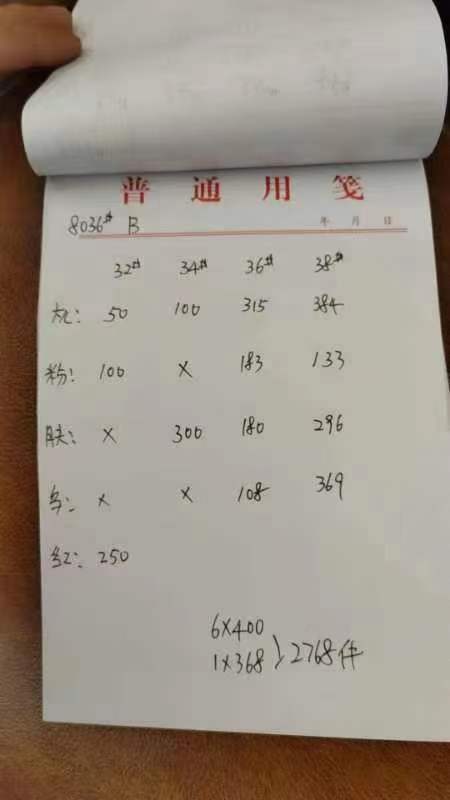 普通用笺
8036# B
年 月 日
32# 34# 36# 38#
50 100 315 384
粉: 100 × 183 133
肤: × 300 180 296
× × 108 369
红: 250
6×400
1×368 } 2768件